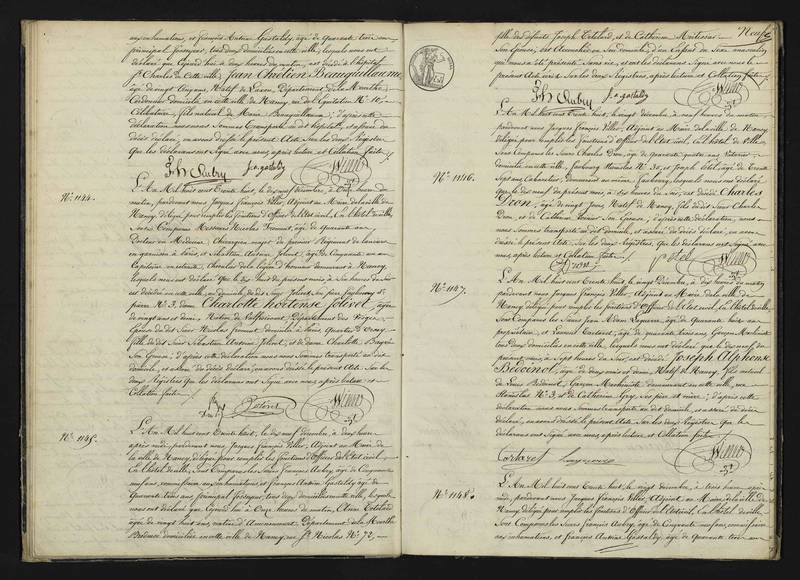 aux inhumations, et françois Antoine Gastaldy, âgé de Quarante trois ans
principal fossoyeur, tous deux domiciliés en cette ville, lesquels nous ont
déclaré que Cejourd'hui à deux heures du matin, est décédé à l'hôpital
St Charles de Cette ville, Jean Chrétien Beauguillaume
âgé de vingt Cinq ans, Natif de Département de la Meurthe
Cordonnier domicilié en cette ville de Nancy, rue de l'Equitation No 10,
Célibataire, fils naturel de Marie Beauguillaume; d'après cette
déclaration nous nous sommes Transporté au dit hôpital, et assuré du
décès déclaré, en avons dressé le présent Acte Sur les deux Registres
Que les déclarants ont Signé avec nous, après lecture et Collation faite
fs Aubry f. a. gastaldy
No 1144. L'An Mil huit cent Trente huit, le dix neuf décembre, à Onze heures du
matin, pardevant nous Jacques François Villers, Adjoint au Maire de la ville de
Nancy, délégué pour remplir les fonctions d'Officier de l'Etat civil, En l'hôtel de ville
Sont Comparus Messieurs Nicolas fromont, âgé de Quarante ans
Docteur en Médecine, Chirurgien major du premier Régiment de lanciers
en garnison à Paris, et Sébastien Antoine Jolivet, âgé de Cinquante un ans
Capitaine en retraite, Chevalier de la légion d'honneur demeurant à Nancy
lesquels nous ont déclaré Que le dix huit du présent mois à Six heures du soir
est décédée en cette ville, au domicile du dit sieur Jolivet, son père, faubourg st
pierre No 3, dame Charlotte hortense Jolivet, âgée
de vingt ans et demi, Native de Département des Vosges
Epouse du dit Sieur Nicolas fromont domicilié à Paris Quartier d'Orsay
fille du dit Sieur Sébastien Antoine Jolivet, et de dame Charlotte
Son Epouse; d'après cette déclaration nous nous Sommes transporté au dit
domicile, et assuré du décès déclaré, en avons dressé le présent Acte Sur les
deux Registres Que les déclarants ont Signé avec nous, après lecture et
Collation faite
Jolivet
No 1145. L'An Mil huit cent Trente huit, le dix neuf décembre, à deux heures
après midi, pardevant nous Jacques François Villers, Adjoint au Maire de
la ville de Nancy, délégué pour remplir les fonctions d'Officier de l'Etat civil
En l'hôtel de ville, Sont Comparus les Sieurs François Aubry, âgé de Cinquante
neuf ans, commissaire aux inhumations, et françois Antoine Gastaldy âgé de
Quarante trois ans, principal fossoyeur, tous deux domiciliés en cette ville, lesquels
nous ont déclaré que Cejourd'hui à Onze heures du matin, Anne
âgée de vingt huit ans, native d'Amenoncourt, Département de la Meurthe
Brodeuse domiciliée en cette ville de Nancy, rue St Nicolas No 72,
Neuf
fille des défunts Joseph et de Catherine
Son Epouse, est Accouchée en Son domicile, d'un Enfant du Sexe masculin
qui nous a été présenté Sans vie, et ont les déclarants Signé avec nous le
présent Acte inscrit Sur les deux Registres, après lecture et Collation faite
fs Aubry f. a. gastaldy
No 1146. L'An Mil huit cent Trente huit, le vingt décembre, à neuf heures du matin
pardevant nous Jacques François Villers, Adjoint au Maire de la ville de Nancy
délégué pour remplir les fonctions d'Officier de l'Etat civil, En l'hôtel de Ville
Sont Comparus les Sieurs Charles Dron, âgé de Quarante quatre ans
domicilié en cette ville, faubourg Stanislas No 30, et Joseph âgé de Trente
Sept ans, Cabaretier, demeurant au même faubourg, lesquels nous ont déclaré
que le dix neuf du présent mois, à dix heures du soir, est décédé Charles
Dron, âgé de vingt jours, Natif de Nancy, fils du dit Sieur Charles
Dron, et de Catherine Son Epouse; d'après cette déclaration, nous
nous Sommes transporté au dit domicile, et assuré du décès déclaré, en avons
dressé le présent Acte Sur les deux Registres, Que les déclarants ont Signé avec
nous, après lecture et Collation faite
Dron
No 1147. L'An Mil huit cent Trente huit, le vingt Décembre, à dix heures du matin
pardevant nous Jacques François Villers, Adjoint au Maire de la ville de
Nancy délégué pour remplir les fonctions d'Officier de l'Etat civil, En l'hôtel de ville
Sont Comparus les Sieurs Jean Adam âgé de Quarante huit ans
propriétaire, et Laurent Cortaret, âgé de quarante trois ans, Garçon Machiniste
tous deux domiciliés en cette ville, lesquels nous ont déclaré que le dix neuf du
présent mois, à Sept heures du Soir, est décédé Joseph Alphonse
Bedoinot, âgé de deux mois et demi, Natif de Nancy, fils naturel
de Louis Bedoinot, Garçon Machiniste demeurant en cette ville, rue
Stanislas No 3, et de Catherine Ses père et mère; d'après cette
déclaration nous nous Sommes transporté au dit domicile, et assuré du décès
déclaré, en avons dressé le présent Acte Sur les deux Registres Que les
déclarants ont Signé avec nous, après lecture et Collation faite
Cortaret
No 1148. L'An Mil huit cent Trente huit, le vingt décembre, à trois heures après
midi, pardevant nous Jacques François Villers, Adjoint au Maire de la ville de
Nancy délégué pour remplir les fonctions d'Officier de l'Etat civil, En l'hôtel de ville
Sont Comparus les Sieurs François Aubry, âgé de Cinquante neuf ans, commissaire
aux inhumations, et françois Antoine Gastaldy, âgé de Quarante trois ans